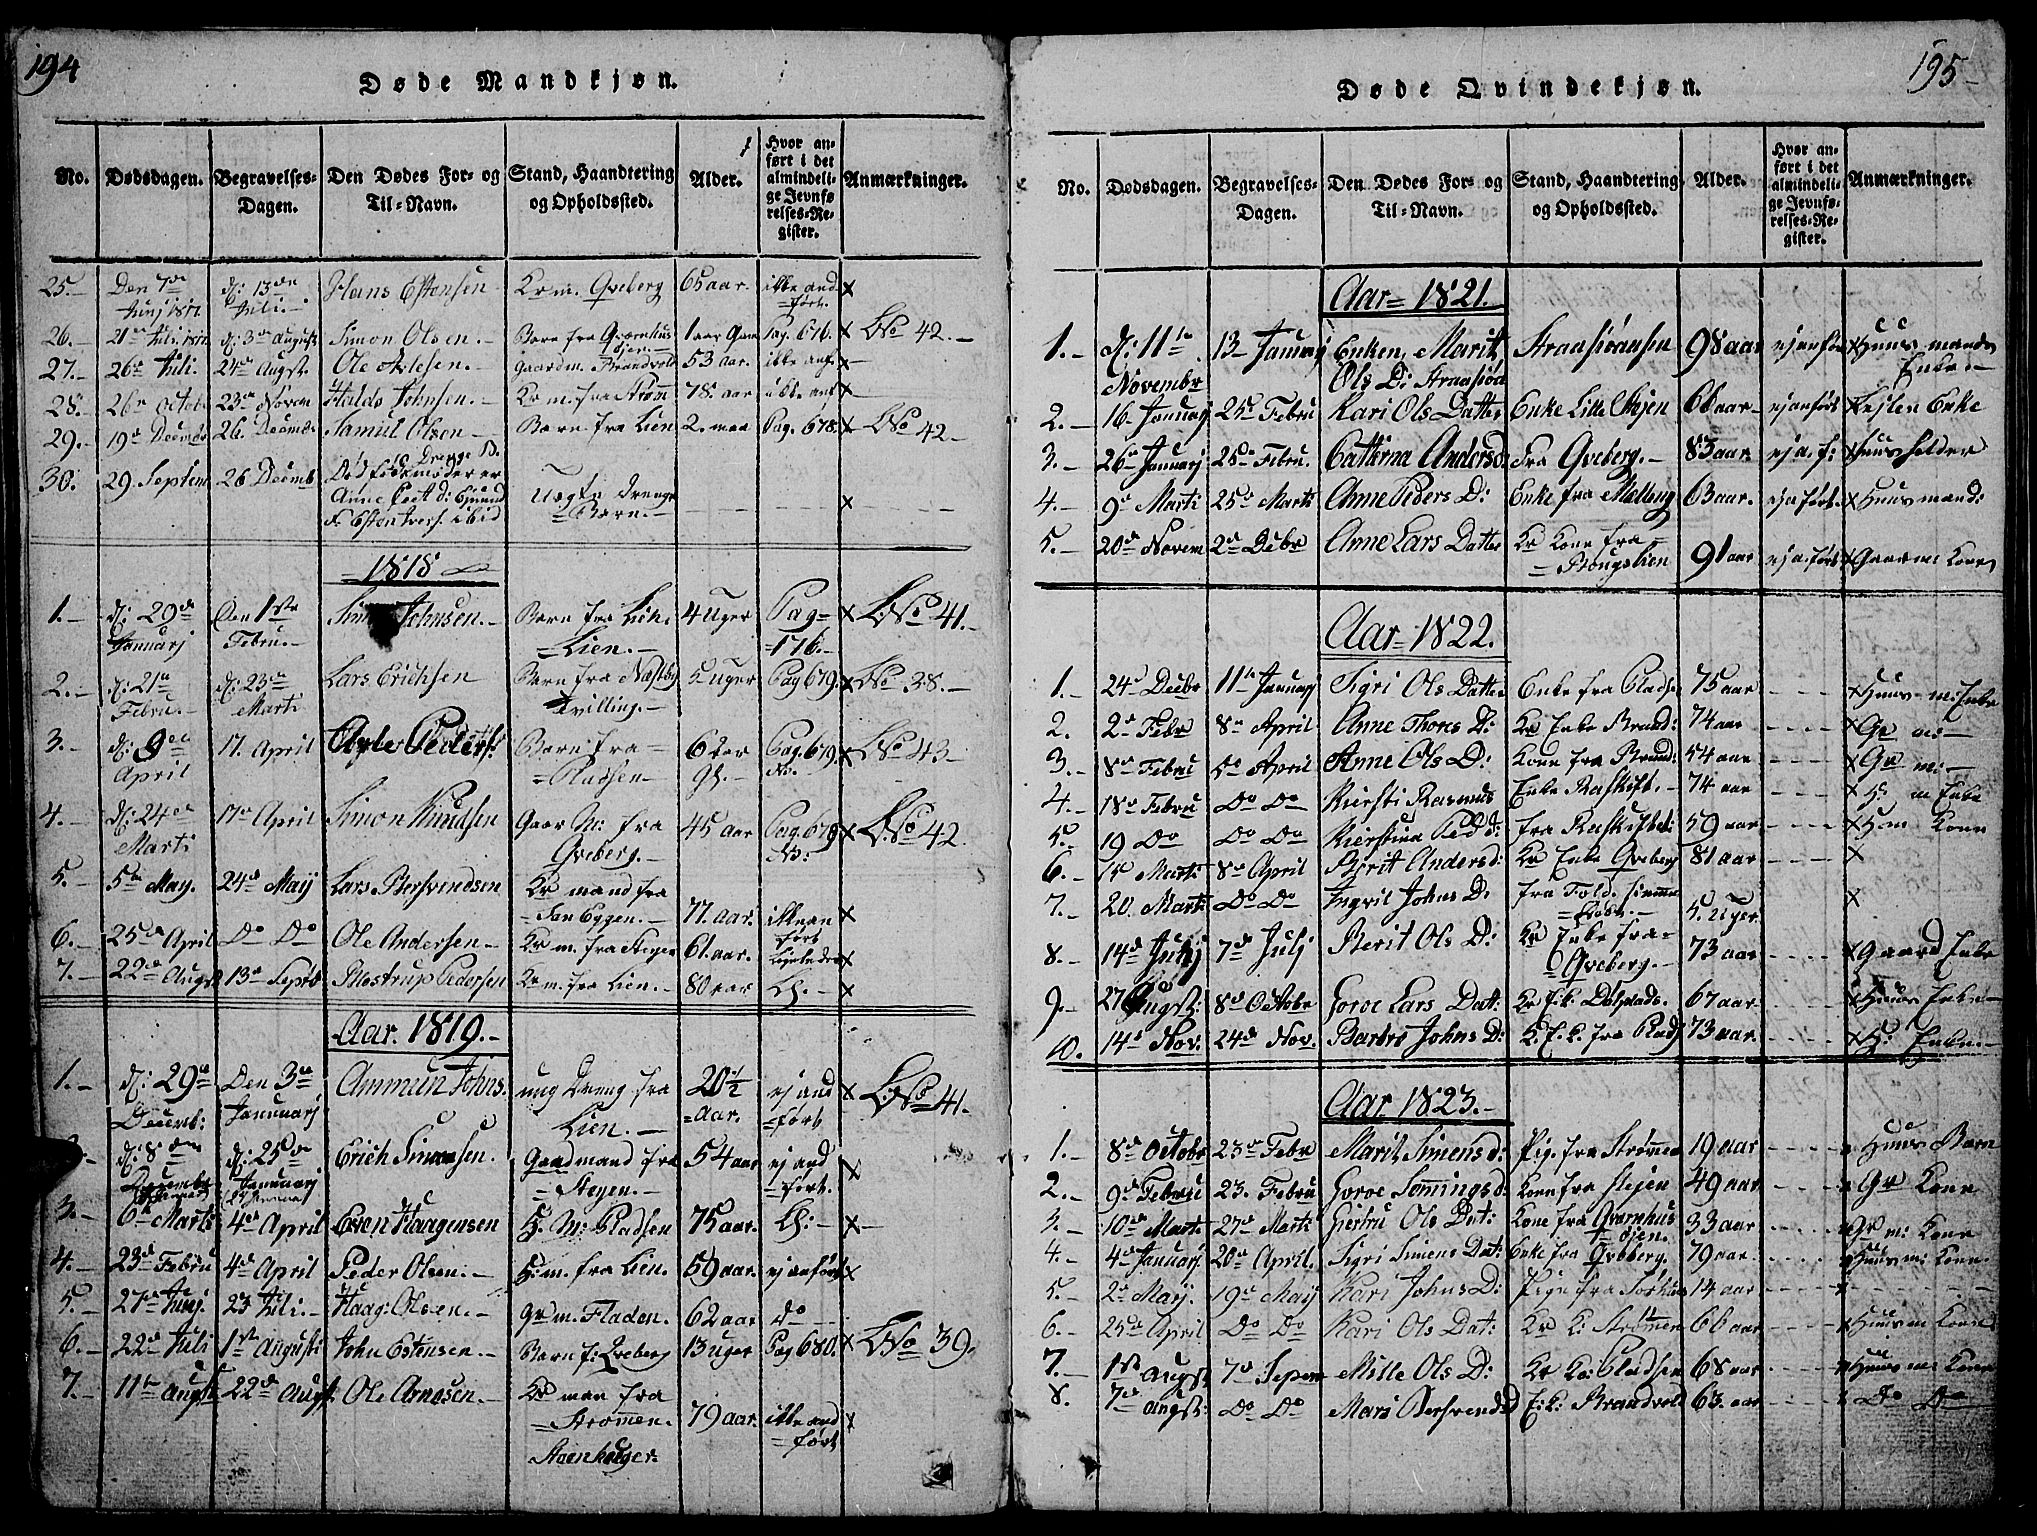 194
Døde Mandkjøn.
No. Dødsdagen. Begravelses-Dagen. Den Dødes For- og Til-Navn. Stand, Haandtering og Opholdssted. Alder. Hvor anført i det almindelige Jevnførelses-Register. Anmærkninger.
25.- Den 7de Junj 1817 d: 13de Juli.- Hans Estensen Kr m. Qveberg 65 aar. ikke and=ført. x
26.- 21de Juli. 1817 d: 3de August Simon Olsen.- Barn fra Qværnhus Øjen 1 aar Gam Pag. 676. x L No 42.-
27.- 26de Juli. 24de Augst. Ole Axlesen.- gaardm. Brandvold 53 aar. ikke anf. x-
28.- 26de Octobr 23de Novem Haldo Johnsen.- Kr m. fra Strøm 78. aar ikke anf x
29.- 19de Decmbr 26. Decmbr Samuel Olsen- Barn fra Lien 2. maa Pag. 678. x L No 42.-
30. 29 Septem 26 Decmb Død født Drenge B. moder er Anne d: Uægte Drenge =Barn.- x
1818
1.- d: 29de Januarj Den 1ste Febru.- Simen Johnsen.- Barn fra Lien.- 4 Uger Pag=176.- x L No 41.-
2.- d: 21de Febru.- d: 23de Marti Lars Erichsen Barn fra Næstby Tvilling.- 5 uger Pag 679. x L No 38.-
3.- d: 9de April 17. April Axle Peders: Barn fra=Pladsen- Pag. 679. No. x L No 43-
4.- d: 24de Marti 17de April Simon Knudsen Gaar M: fra Qveberg.- 45 aar Pag. 679 x L No 42.
5.- 5te May. 24de Maij Lars Bersvendsen Kr mand fra =Jan Eggen.- 77. aar: ikke an ført x
6.- 25de April Do Do Ole Andersen- Kr m. fra Stejen 61. aar. x
7.- 22de Augst 13de Septb Mostrup Pedersen Kr m. fra Lien.- 80 aar x
Aar. 1819.-
1.- d: 29de Decemb: Den 3de Januarj Ammun Johns. ung Dreng fra Lien.- 20 1/2 =aar. ej and =ført x L No 41.
2.- d: 8de Decembr d: 25de Januarj Erich Simonsen. Gaardmand fra =Stejen.- 54 aar ej and =ført. x
3.- 6te Marti 4de April Even Haagensen H: M: Pladsen 75 aar. x-
4.- 23de Febru 4de April Peder Olsen.- H: m. fra Lien. 59 aar. ej anført x
5.- 27de Junj. 23 Juli.- Haag: Olsen.- Gr m. Fladen. 62 aar do
6.- 22de Juli 1ste Augusti John Estensen.- Barn f: Qveberg 13 uger Pag 680. x L No 39.
7.- 11te Augst 22de Augst Ole Arnesen.- Kr man fra =Strømmen. 79 aar. ikke and =ført x
195-
Døde Qvindekjøn.
No. Dødsdagen. Begravelses-Dagen. Den Dødes For- og Til-Navn. Stand, Haandtering og Opholdssted. Alder. Hvor anført i det almindelige Jevnførelses-Register. Anmærkninger.
Aar= 1821.
1.- d: 11te Novembr 13- Januarj Enken Marit Ols D: 98 aar ej anfør x Huus mands Enke.-
2.- 16. Januarj 25de Febru Kari Ols Datter Enke Lille Stejen 66 aar- ej anført x Enke
3.- 26de Januarj 25de Febru. Cattrina Andersd fra Qveberg.- 83 aar. ej a. f: x Huusholder
4.- 9de Marti 25de Marti Anne Peders D: Enke fra Melleng 63 aar. ej a ført. x Huusmand:
5.- 20de Novem 2de Debr Anne Lars Datter Kr Kone fra =Rougslien 91 aar ej a. ført x Gaarm: Kone
Aar=1822.
1.- 24de Decbr 11te Januarj Sigri Ols Datter Enke fra Pladse 75 aar ---- x Huus-m: Enke
2. 2de Febr 8de April Anne Thores D: Kr Enke Brand: 74 aar ---- x Gr m:-
3.- 8de Febru Do April Anne Ols D: Kone fra Brand: 54 aar ---- x Gr m:-
4.- 18de Febru Do Do Kiersti Rasmus Enke Raskift.- 74 aar ---- x H: m Enke
5.- 19 Do Do Do Kierstina Ped d: fra Raskiftet: 59 aar ---- x Hm Kone
6.- 15 Marti 8de April Berit Anders d: Kr Enke Qveberg 81 aar ---- x
7.- 20. Marti Do Do Ingri Johns D. fra 5. uger x
8. 14de Junj 7de Julj Berit Ols D: Kr Enke fra= =Qveberg.- 73 aar ---- x Gaard Enke
9.- 27 Augst: 8de Octobr Goroe Lars Dat: Kr E.k: 67 aar ---- x Huus Enke-
10. 14de Nov: 24de Nov. Barbro Johns D: K. E. k. fra Plads 73 aar ---- x H: Enke.-
Aar 1823.-
1.- 8de Octobr 23de Febr Marit Simens d: Pig. fra Strømen 19 aar ---- x Huus Barn
2.- 9de Febru 23. Febru Goroe Semmings d: Kone fra Stejen 49 aar ---- x Gr Kone
3.- 10de Marti 27de Marti Gjertru Ols Dat: Kone fra Qværnhus =Øjen. 33 aar ---- x Gr m: Kone
4.- 4de Januarj. 20de April. Sigri Simens Dat: Enke fra Qveberg. 79 aar. ---- x Huus m: Kone.
5.- 2de Maij. 19de Maij Kari Johns D: Pige fra 14 aar ---- x
6.- 25de April Do Do Kari Ols Dat: Kr K: Strømen 66 aar ---- x Huus m Kone
7.- 1ste Augst 7de Sepem Mille Ols D: Kr K: Pladsen 68 aar ---- x Huus m: Kone
8. 7de Augst: Do Do Mari Bersvends D E:k: Brandvold 63. aar ---- x Do Do